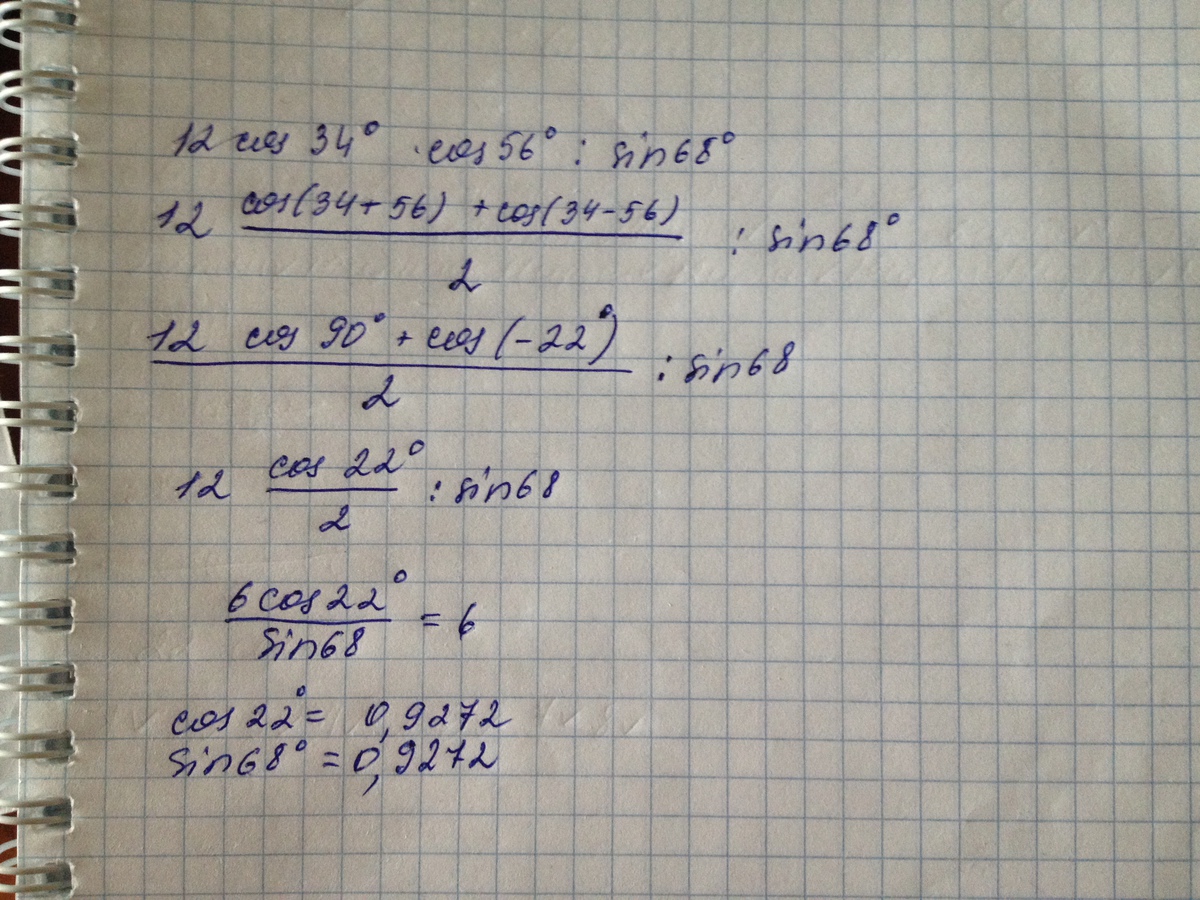 12 cos 34° · cos 56° : sin 68°
12 cos(34+56) + cos(34-56) / 2 : sin 68°
12 cos 90° + cos (-22°) / 2 : sin 68
12 cos 22° / 2 : sin 68
6 cos 22° / sin 68 = 6
cos 22° = 0,9272
sin 68° = 0,9272